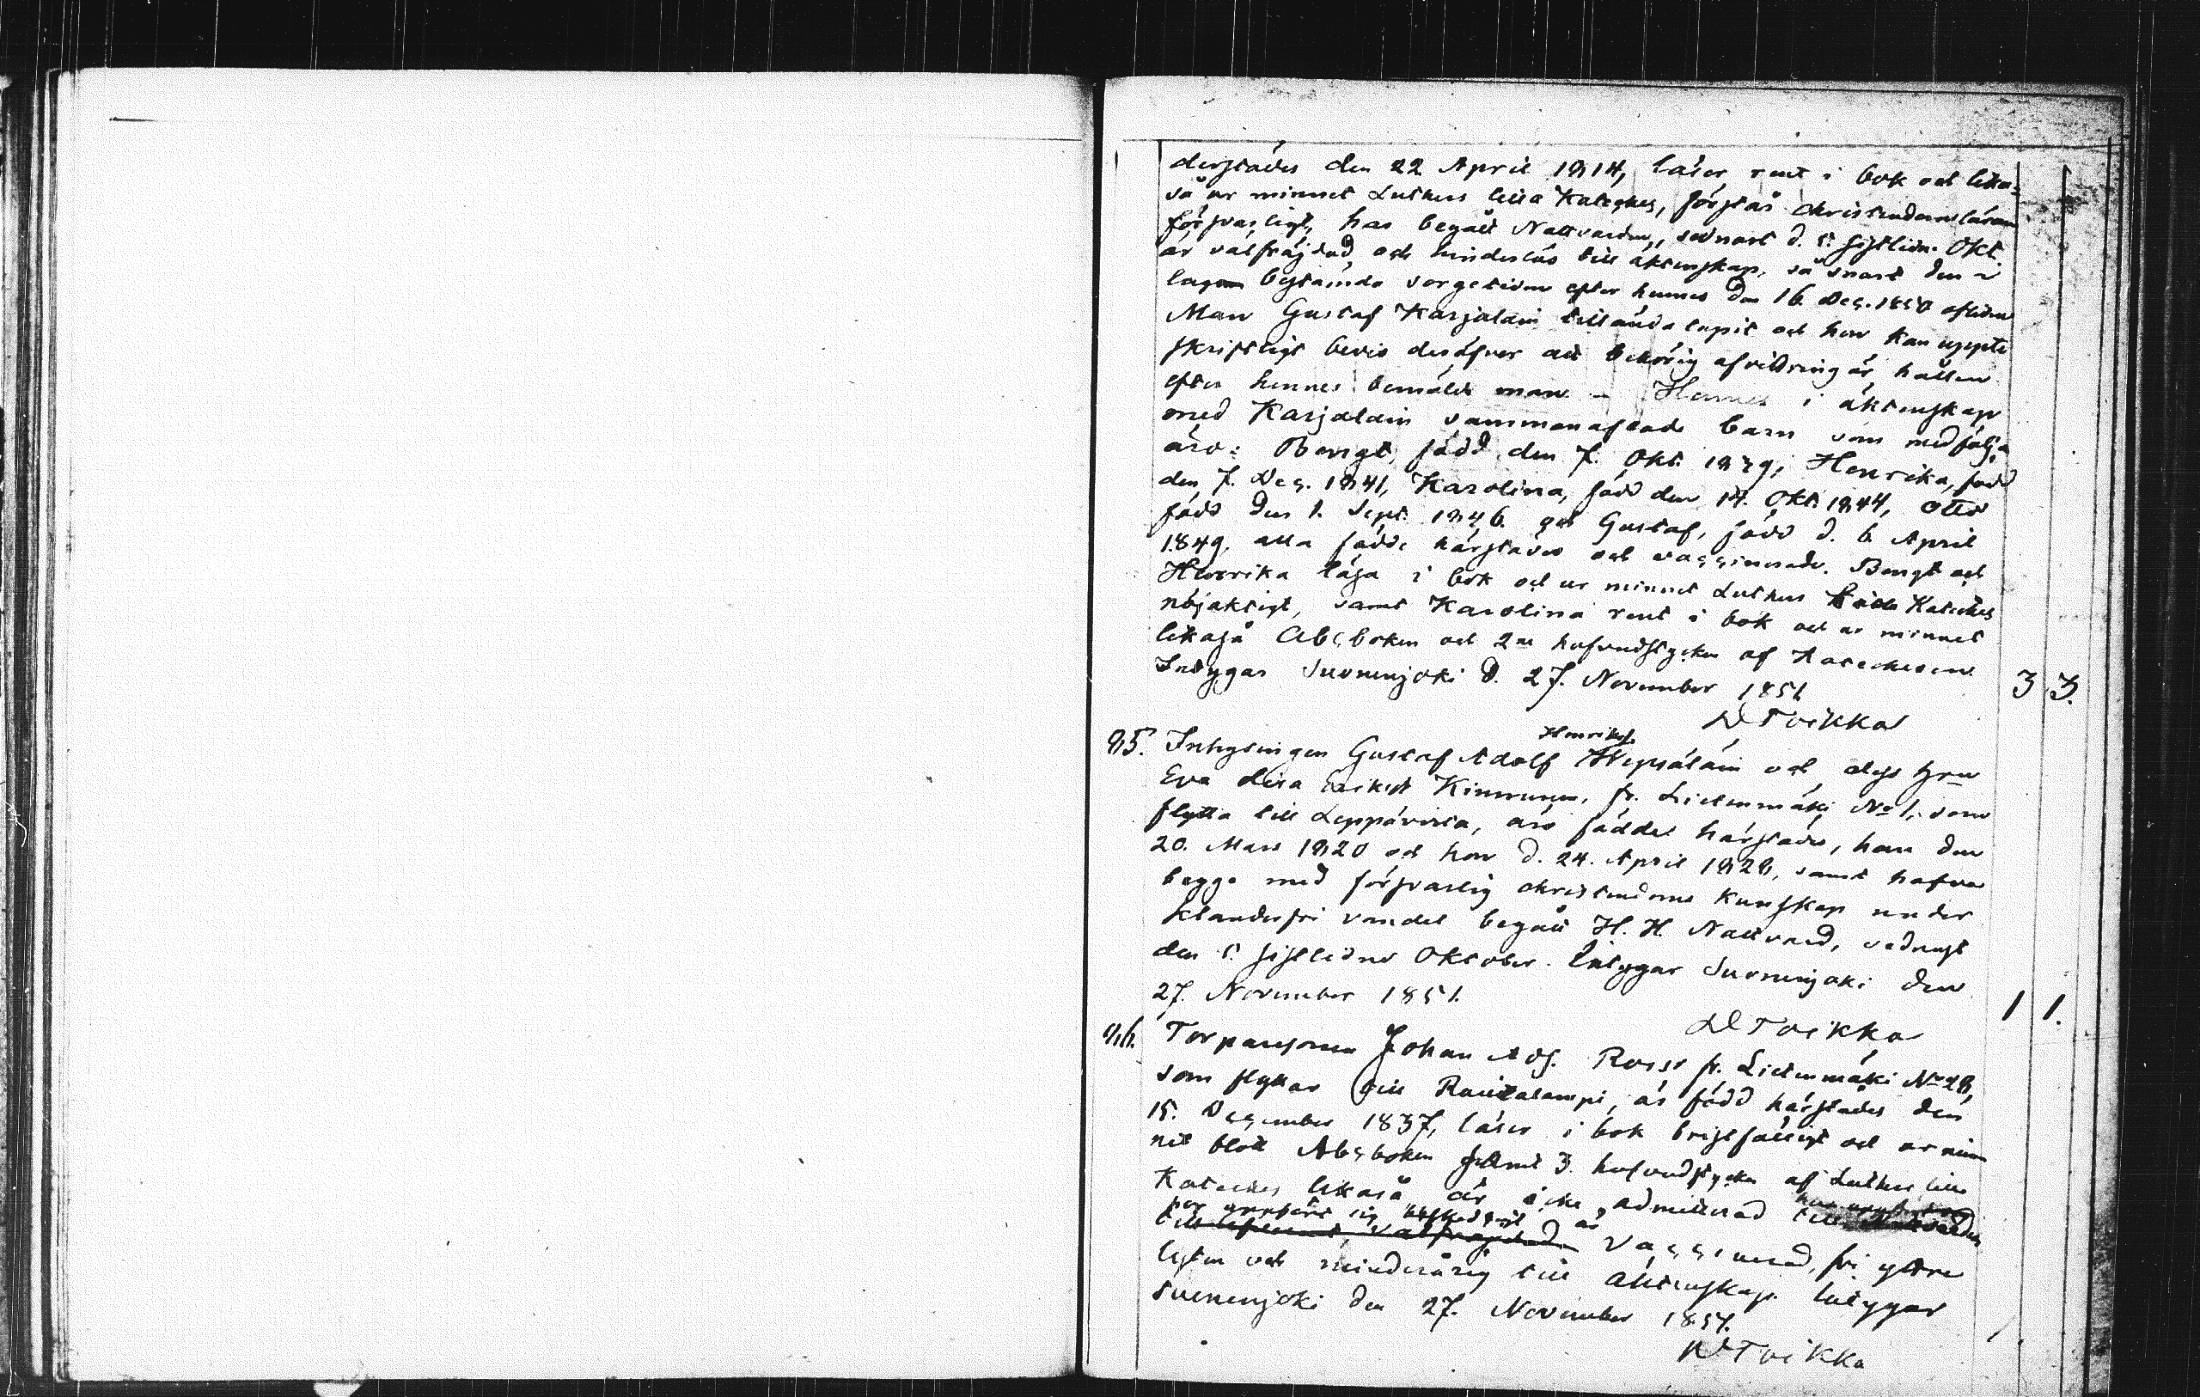 derstädes den 22 April 1814, läser rent i bok och lika-
så ur minnet Luthers lilla Kateches, förstår christendomsläran
försvarligt, har begått Nattvarden, sednast d. 5. sistlidne Okt.
är välfräjdad, och hinderlös till äktenskap, så snart den i
lagen bestämda sorgetiden efter hennes den 16 Dec. 1850 aflidne
Man Gustaf Karjalain tilländalupit och hon kan uppte
skriftligt bevis deröfver att behörig afvittring är hållen
efter hennes bemälde man – Hennes i äktenskap
med Karjalain sammanaflade barn som medfölja
äro: Bengt, född den 7. Okt. 1839, Henrika, född
den 7. Dec. 1841, Karolina, född den 14. Okt. 1844, Otto
född den 1. Sept. 1846 och Gustaf, född d. 6 April
1849, alla födde härstädes och vaccinerade. Bengt och
Henrika läsa i bok och ur minnet Luthers Kateches
nöjaktigt, samt Karolina rent i bok och ur minnet
likaså Abcboken och 2ne hufvudstycken af Katechesen
Intygar Suonenjoki d. 27. November 1851.
3 3.
D Toikka
Henriksj.
85. Inhysingen Gustaf Adolf Wepsäläin och dess hru
Eva Lisa Eriksd. Kinnunen, fr. Lietenmäki No 1, som
flytta till Leppävirta, äro födde härstädes, han den
20. Mars 1820 och hon d. 24. April 1828, samt hafva
begge med försvarlig christendoms kunskap under
klanderfri vandel begått H. H. Nattvard, sednast
den 5. sistlidne Oktober. Intygar Suonenjoki den
27. November 1851.
1 1.
D Toikka
86. Torparesonen Johan Adf. Ross fr. Lietenmäki No 28,
som flyttar till Rautalampi, är född härstädes den
15. December 1837, läser i bok bristfälligt och ur min-
net blott Abcboken samt 3. hufvudstycken af Luthers lilla
Kateches likaså är icke admitterad till Nattvarden
har uppfört sig är
vaccinerad, fri yttre
lyten och minderårig till äktenskap. Intygar
Suonenjoki den 27. November 1851.
D Toikka